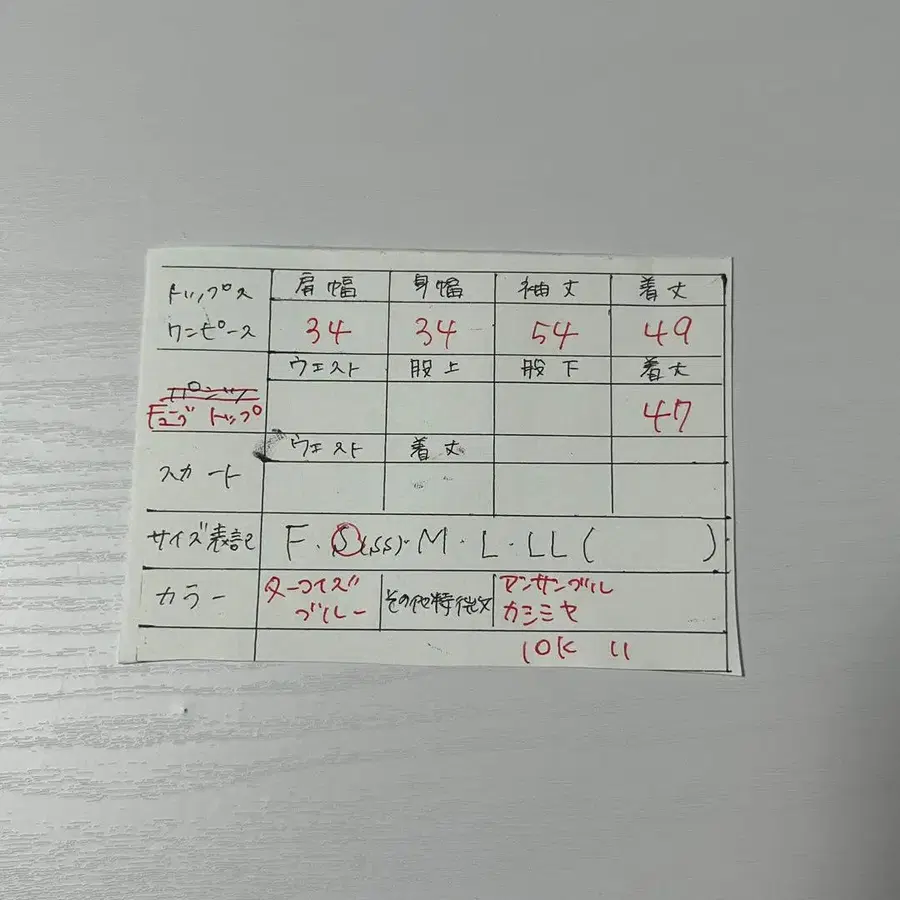 トップス
ワンピース
肩幅 身幅 袖丈 着丈
34 34 54 49
ウエスト 股上 股下 着丈
トップ
47
スカート
ウエスト 着丈
サイズ表記 F・S(SS)・M・L・LL( )
カラー ターコイズ
ブルー
その他特徴 アンサンブル
カシミヤ
10K 11